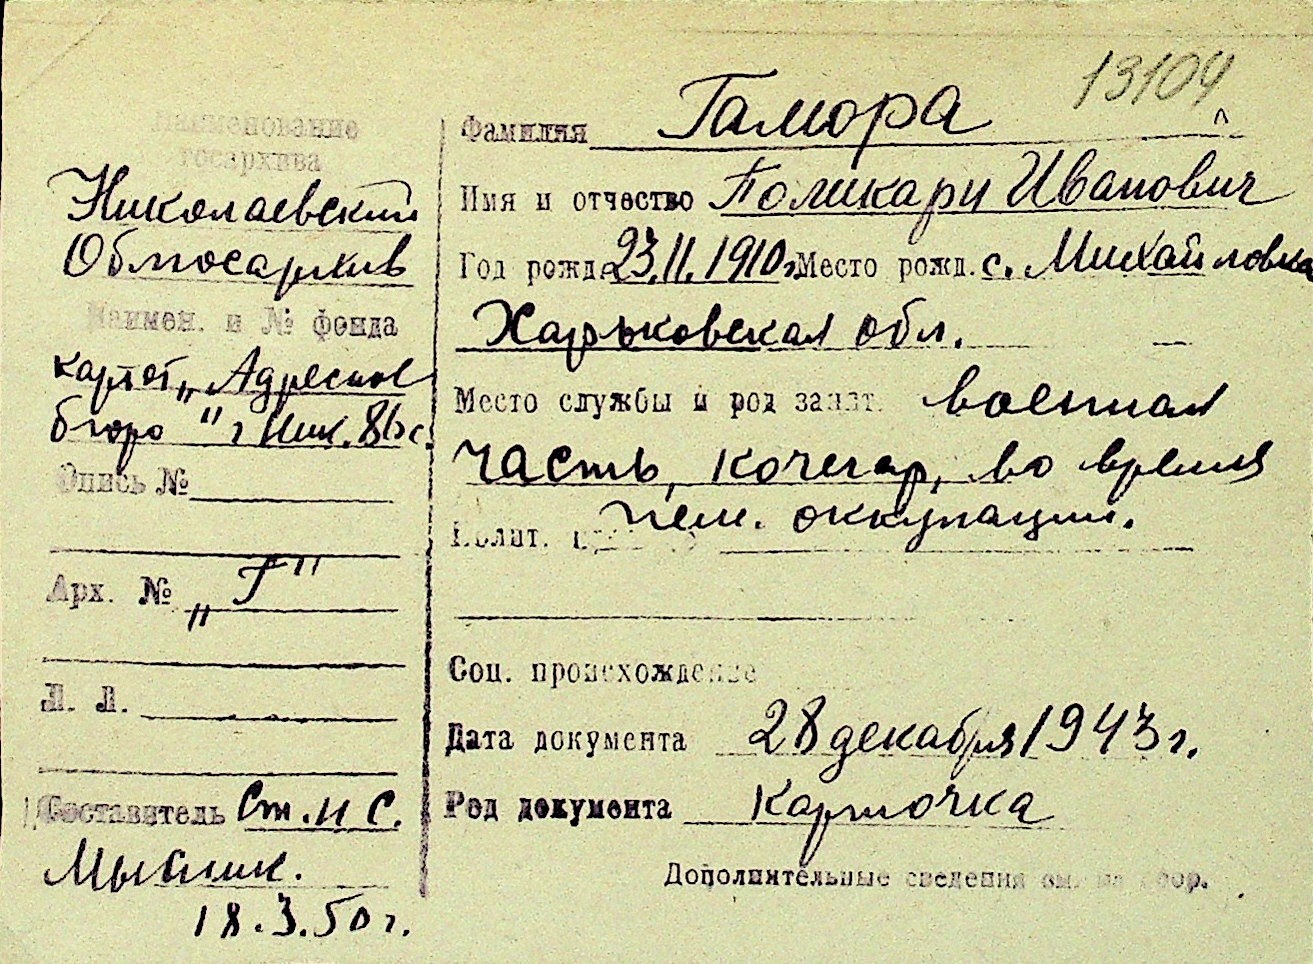 13104
Наименование
госархива
Николаевский
Облгосархив
Наимен. и № фонда
картот. „Адресное
бюро" г Ник.
Опись №
Арх. № „Г"
Л. Л.
Составитель Ст. н с.
18.3.50 г.
Фамилия Гамора
Имя и отчество Поликарп Иванович
Год рожд. 23.11.1910 г. Место рожд. с. Михайловка
Харьковская обл.
Место службы и род занят. военная
часть, кочегар, во время
нем. оккупации.
Полит.
Соц. происхождение
Дата документа 28 декабря 1943 г.
Род документа карточка
Дополнительные сведения см. на обор.